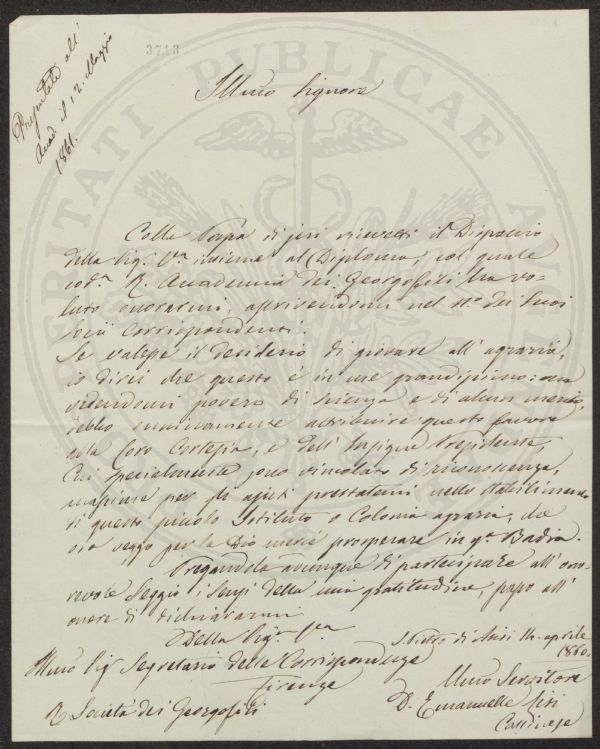 Presentata all'
Acad. il 12. Maggio
1861.
3713
Illmo Signore
Colla Posta di jeri ricevetti il Dispaccio
della Sig.a V.a insieme al Diploma, col quale
cod.a R. Accademia dei Georgofili ha vo-
luto onorarmi, ascrivendomi nel N.o dei Suoi
Socii Corrispondenti.
Se valesse il desiderio di giovare all'agraria,
io direi che questo è in me grandissimo: ma
vedendomi povero di scienza e di alcun merito,
debbo unicamente attribuire questo favore
alla Loro Cortesia, e dell'Insigne Presidente,
Cui specialmente sono vincolato di riconoscenza,
massime per gli ajuti prestatemi nello stabilimento
di questo piccolo Istituto o Colonia agraria, che
ora veggo per la Dio mercè prosperare in q.a Badia.
Pregandola adunque di partecipare all'ono-
revole Seggio i sensi della mia gratitudine, passo all'
onore di dichiararmi
Della Sig.a V.a
S. Pietro di Assisi 14. aprile
1860.
Illmo Sig.r Segretario delle Corrispondenze
Firenze
R. Società dei Georgofili
Illmo Servitore
D. Emanuelle Lisi
Cassinese
PROSPERITATI PUBLICAE AUGENDAE